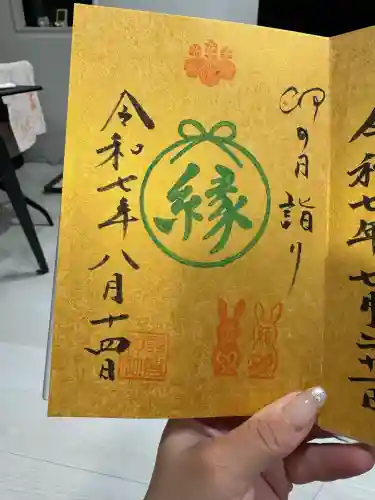 令和七年七月二十一日
卯の月詣り
縁
令和七年八月十四日